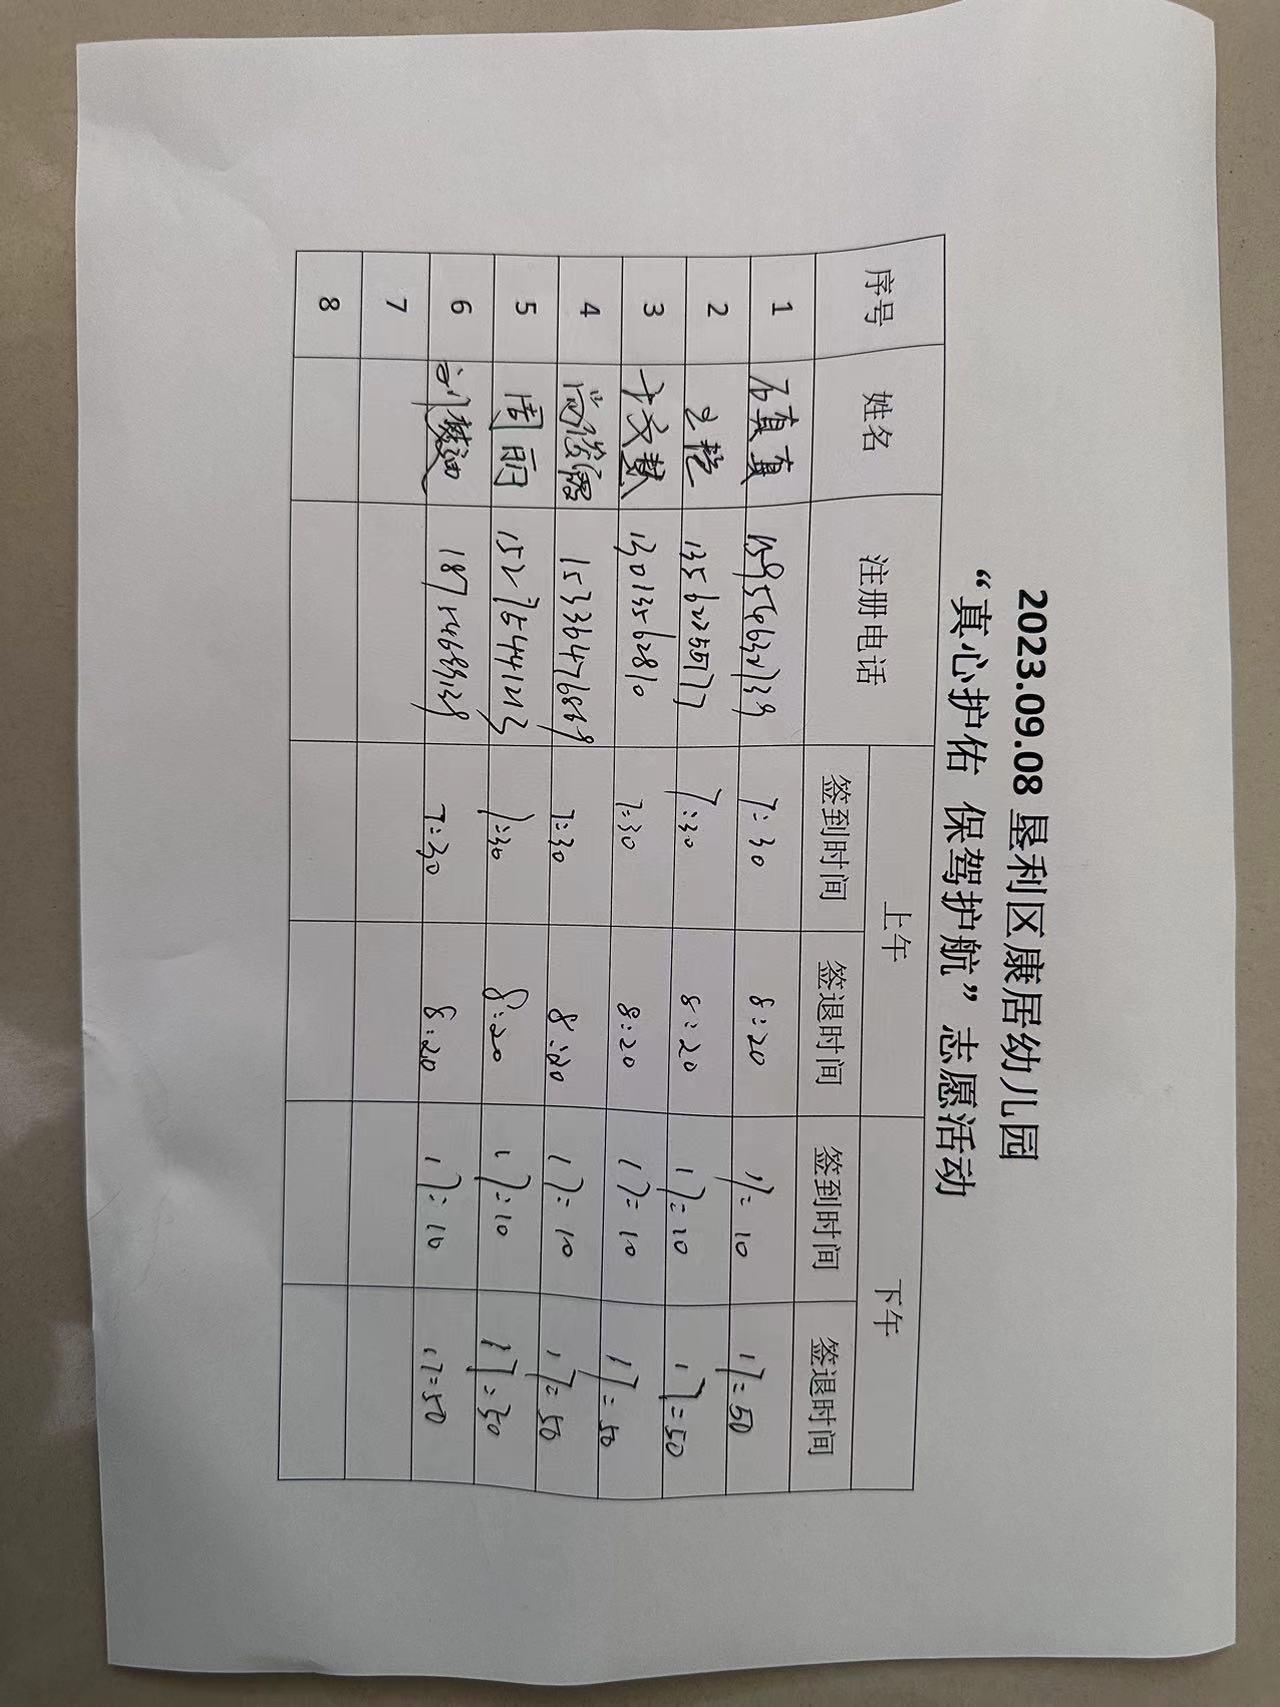 2023.09.08 垦利区康居幼儿园
“真心护佑 保驾护航”志愿活动
序号 姓名 注册电话 上午 下午
签到时间 签退时间 签到时间 签退时间
1 石真真 7:30 8:20 17:10 17:50
2 7:30 8:20 17:20 17:50
3 13013562810 7:30 8:20 17:10 17:50
4 15336476869 7:30 8:20 17:10 17:50
5 周丽 15275441213 7:30 8:20 17:10 17:30
6 7:30 8:20 17:10 17:50
7
8